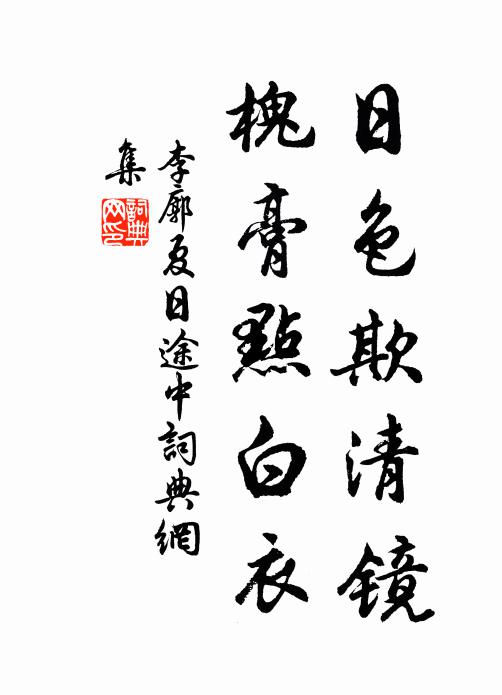 日色欺清镜
槐膏點白衣
李廓夏日途中詞典網
集
詞典网印